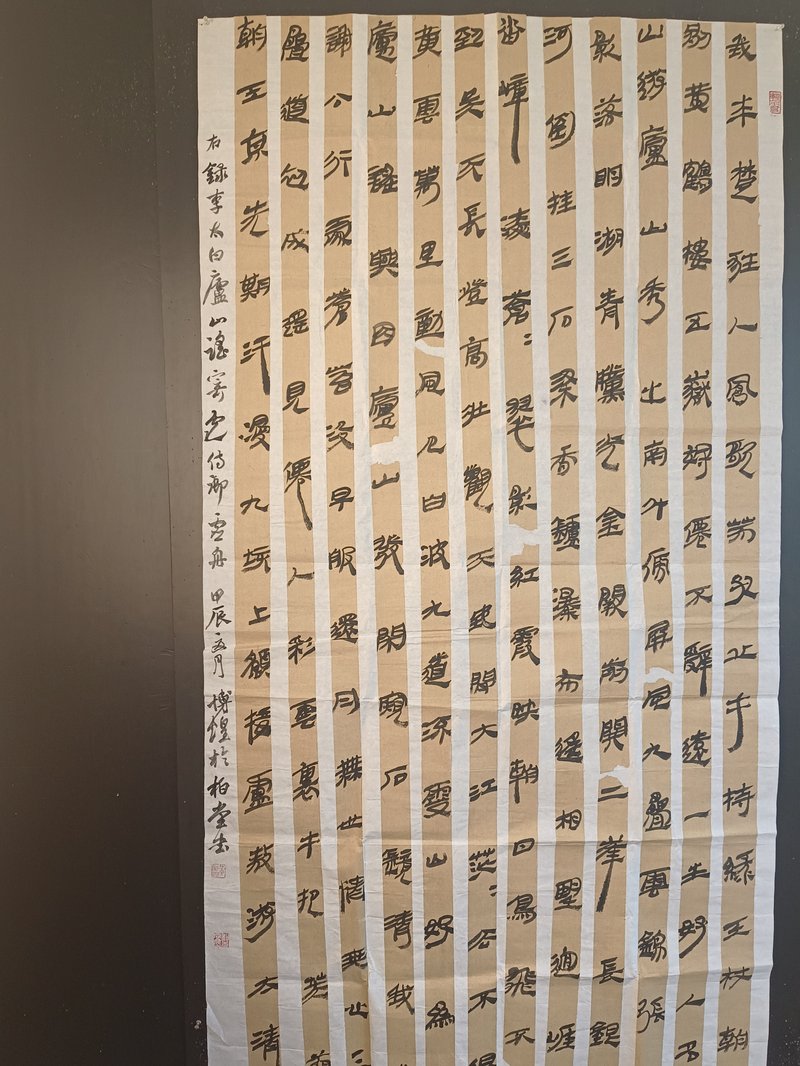 我本楚狂人鳳歌笑孔丘手持綠玉杖朝
別黃鶴樓五嶽尋僊不辭遠一生好入名
山遊廬山秀出南斗傍屏風九疊雲錦張
影落明湖青黛光金闕前開二峯長銀
河倒挂三石梁香罏瀑布遙相望迴崖
沓嶂凌蒼蒼翠影紅霞映朝日鳥飛不
到吳天長登高壯觀天地間大江茫茫去不還
黃雲萬里動風色白波九道流雪山好為
廬山謠興因廬山發閑窺石鏡清我
謝公行處蒼苔沒早服還丹無世情琴心三
疊道初成遙見僊人彩雲裏手把芙
朝玉京先期汗漫九垓上願接盧敖游太清
右錄李太白廬山謠寄盧侍御虛舟 甲辰五月 博煌於柏堂書